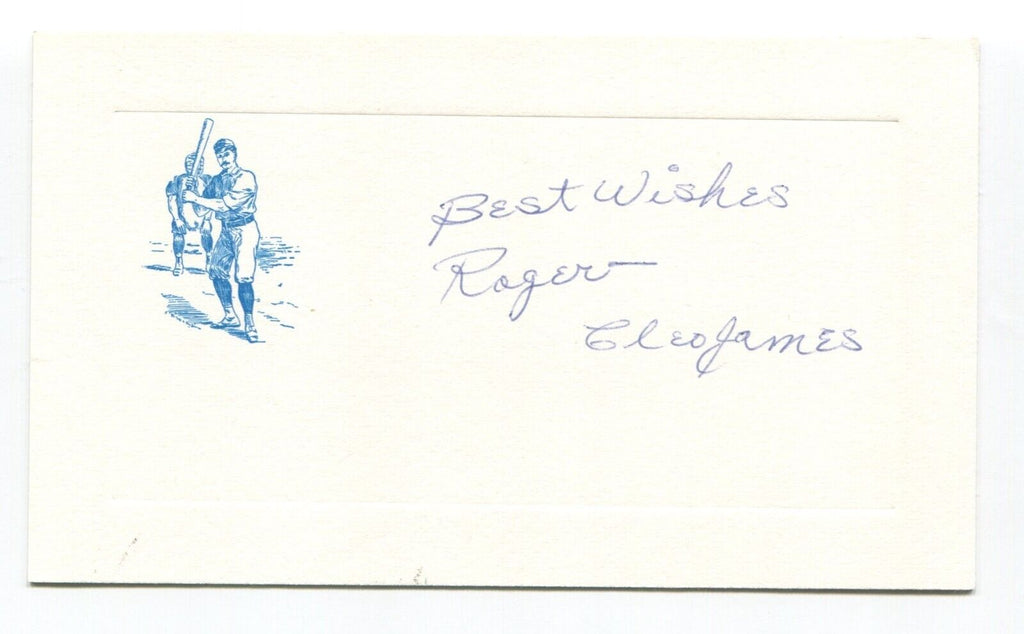 Best Wishes
Roger
Cleo James